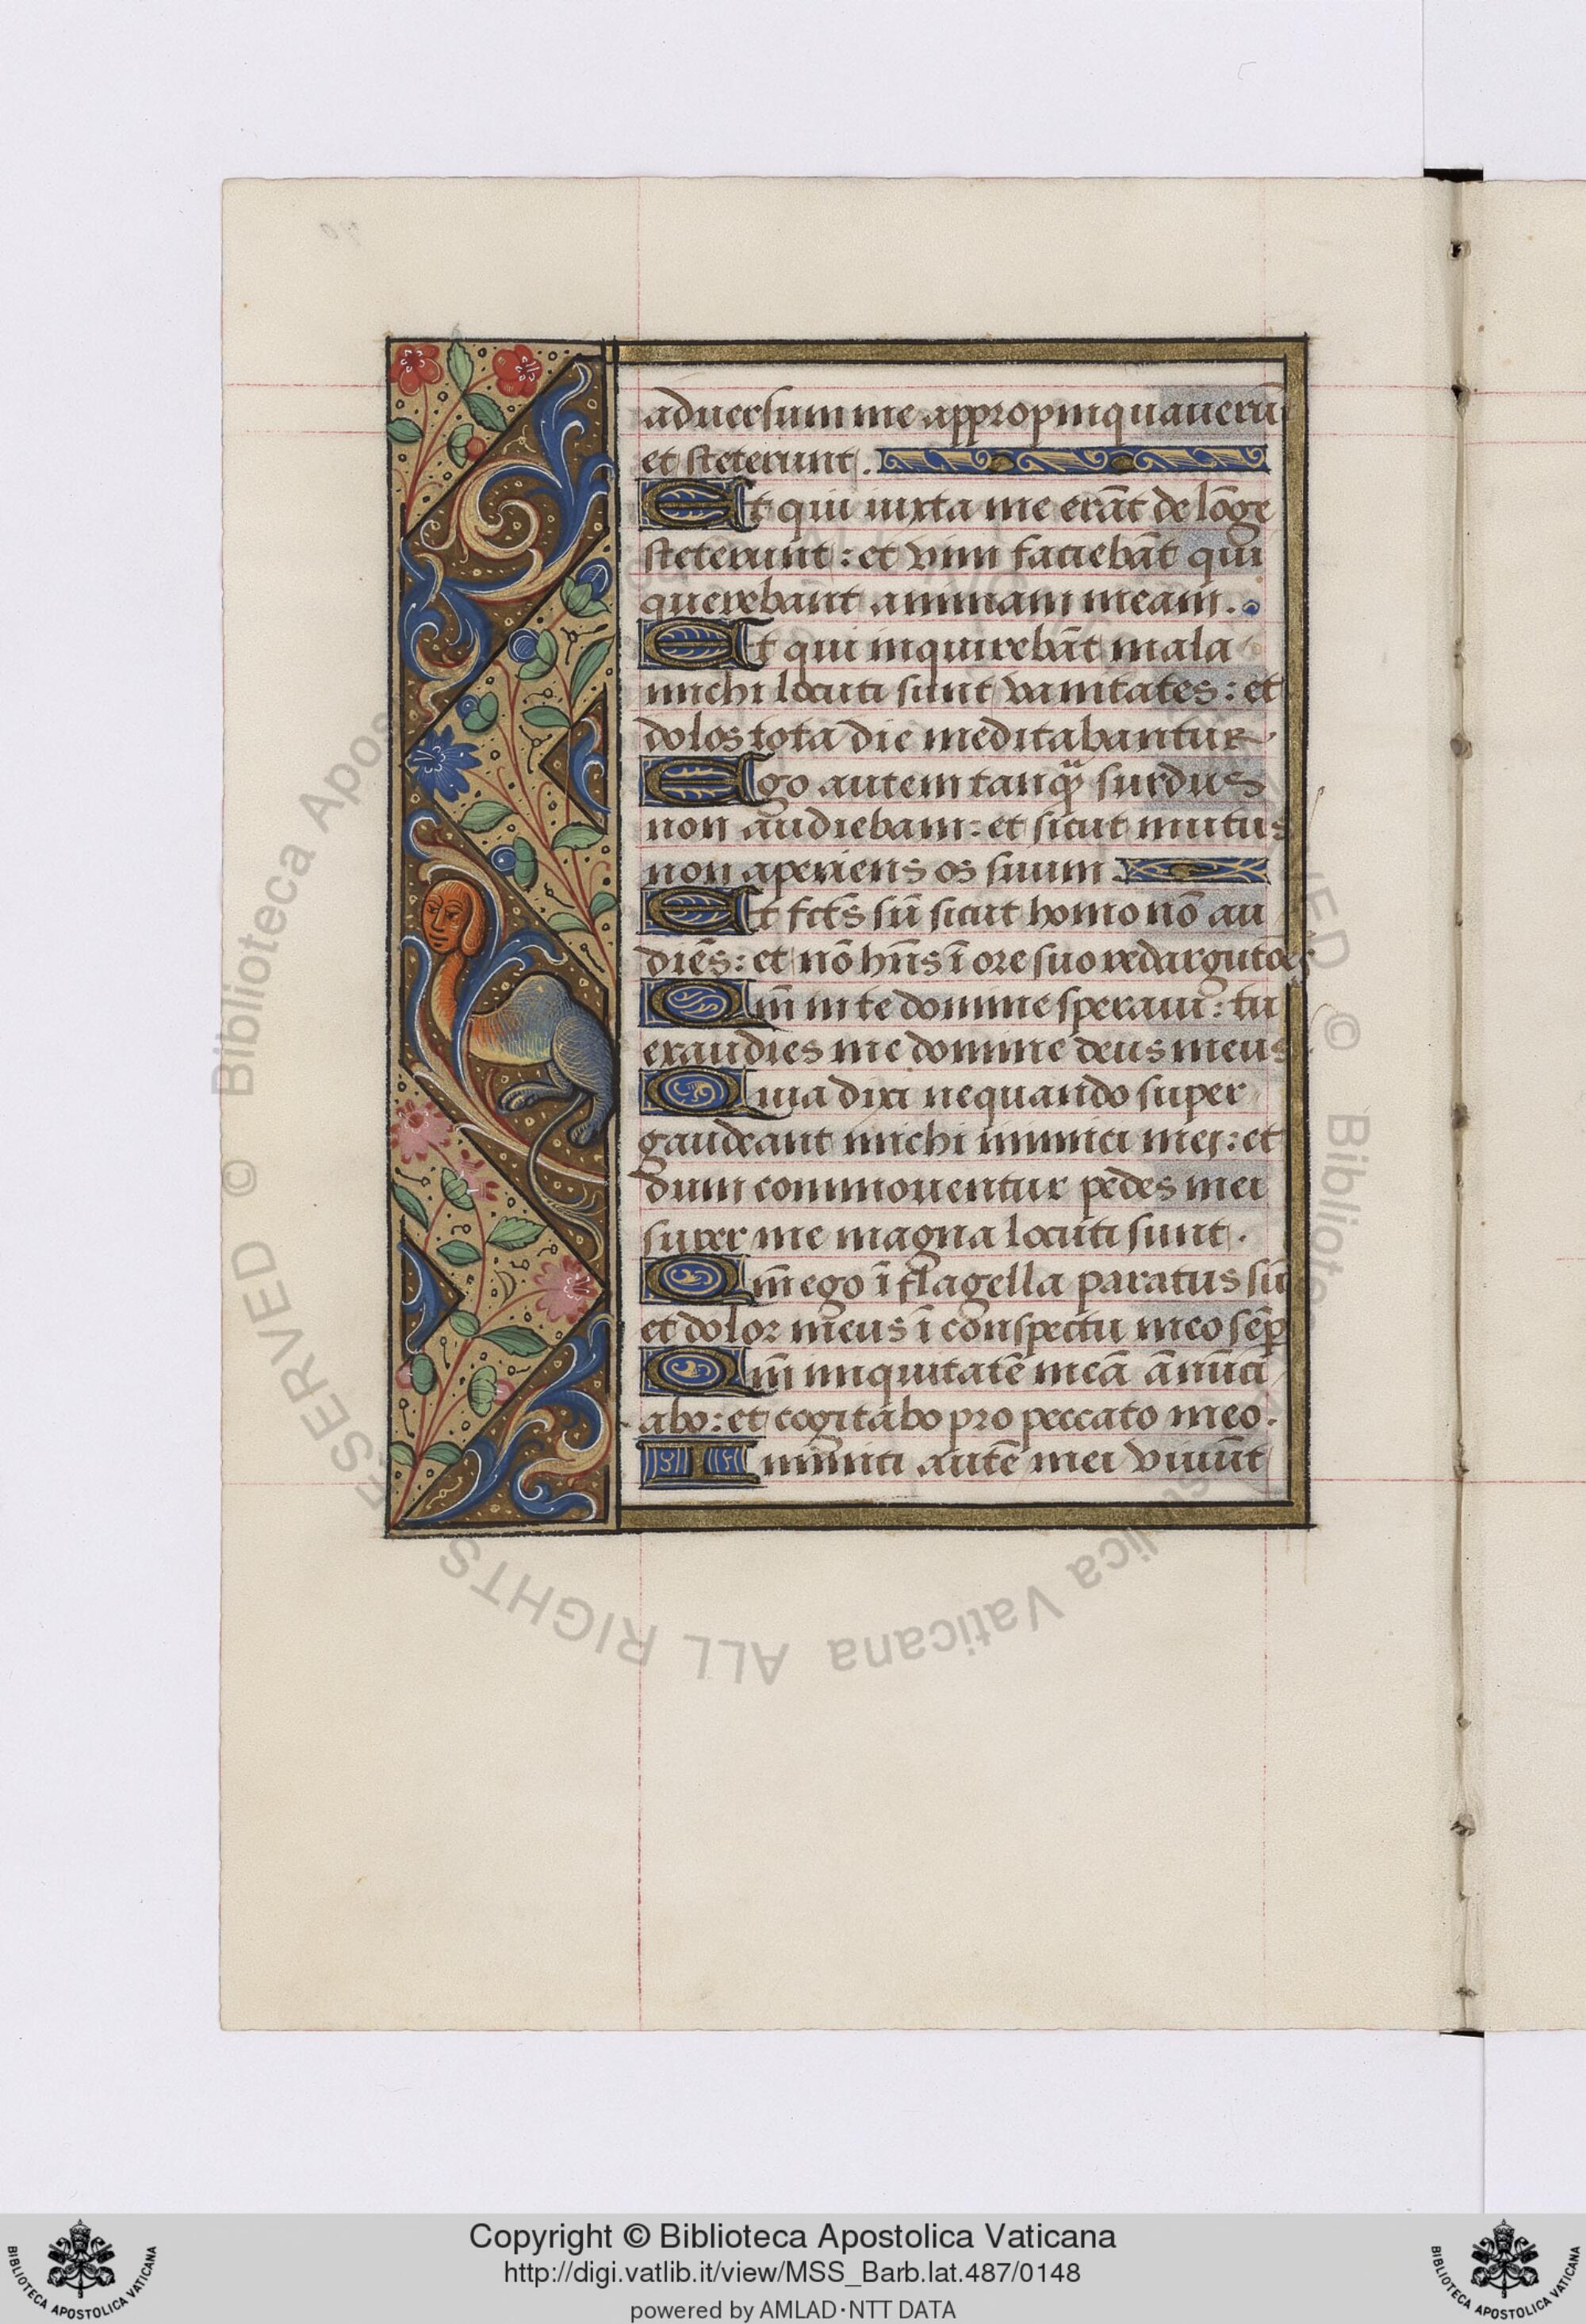 aduersum me appropinquauerūt
et steterunt.
Et qui iuxta me erāt de lōge
steterunt: et vim faciebāt qui
querebant animam meam.
Et qui inquirebāt mala
michi locuti sunt vanitates: et
dolos tota die meditabantur.
Ego autem tanqȝ surdus
non audiebam: et sicut mutus
non aperiens os suum.
Et fct̄s sū sicut homo nō au
diēs: et nō hn̄s ī ore suo redargutōes
Qm̄ in te domine speraui: tu
exaudies me domine deus meus
Quia dixi nequando super
gaudeant michi inimici mei: et
dum commouentur pedes mei
super me magna locuti sunt.
Qm̄ ego ī flagella paratus sū
et dolor meus ī conspectu meo sēp
Qm̄ iniquitatē meā ānūci
abo: et cogitabo pro peccato meo.
Inimici autē mei viuūt
Copyright © Biblioteca Apostolica Vaticana
http://digi.vatlib.it/view/MSS_Barb.lat.487/0148
powered by AMLAD·NTT DATA
BIBLIOTECA APOSTOLICA VATICANA
BIBLIOTECA APOSTOLICA VATICANA